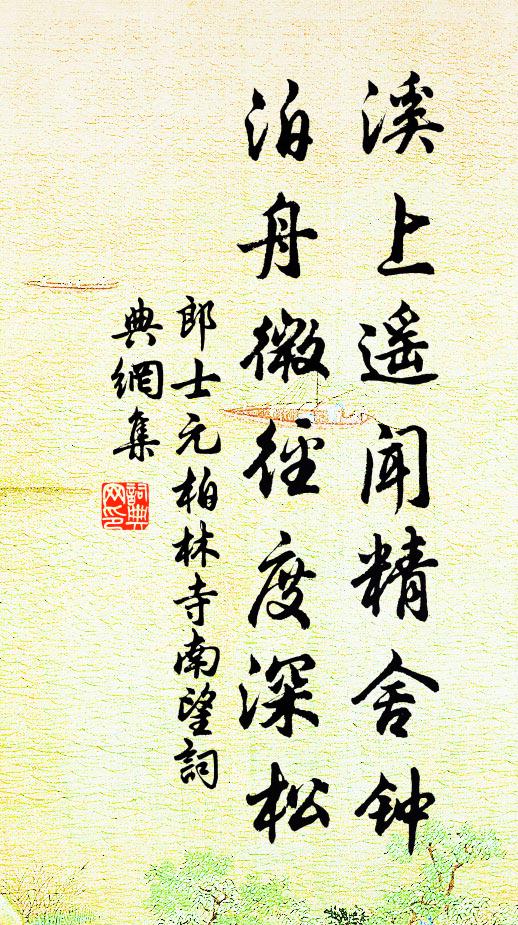 溪上遥闻精舍钟
泊舟微径度深松
郎士元柏林寺南望詞
典網集
詞典
网印